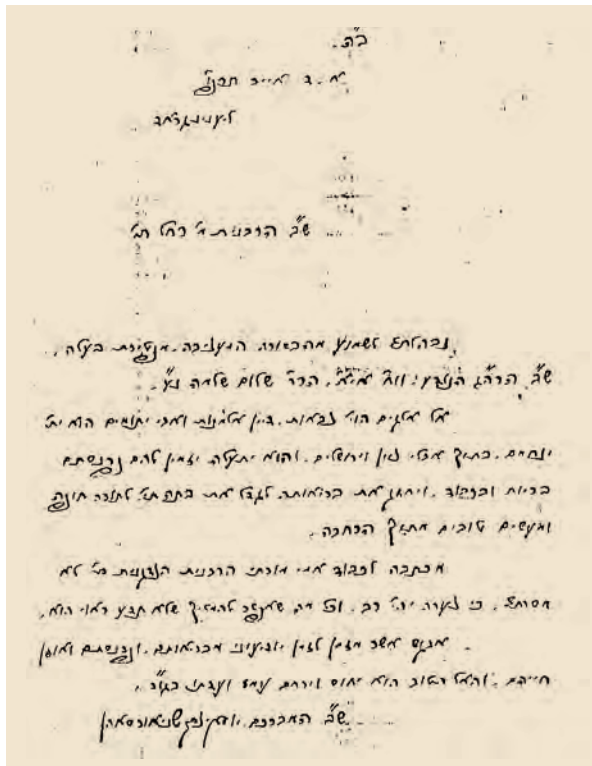 ב"ה.
א. ד אייר תרפ"ג
לענינגראד
ש"ב הרבנית מ' רחל תי'
נבהלתי לשמוע מהבשורה המעציבה, מפטירת בעלה,
ש"ב הרה"ג הנודע! וו"ח אי"א, הרר' שלום שלמה נ"ע.
אל אלקים הוי' צבאות, דיין אלמנות ואבי יתומים הוא ית'
ינחמם, בתוך אבלי ציון וירושלים, והוא יתעלה יזמין להם פרנסתם
בריוח ובכבוד, ויחזק את בריאותה לגדל את בתה תי' לתורה חופה
ומעשים טובים מתוך הרחבה.
מכתבה לכבוד אמי מורתי הרבנית הצדקנית תי' לא
מסרתי, כי צערה יהי' רב, וכל מה שאפשר להמשיך שלא תדע ראוי הוא.
אבקש אשר מזמן לזמן יודיעוני מבריאותם, ופרנסתם ואופן
חייהם, והאל הטוב הוא יחוס וירחם עמו ועדתו בגו"ר.
ש"ב המברכם, יוסף יצחק שניאורסאהן